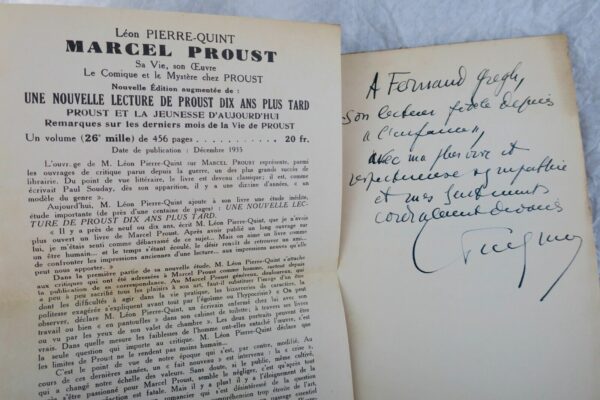 Léon PIERRE-QUINT
MARCEL PROUST
Sa Vie, son Œuvre
Le Comique et le Mystère chez PROUST
Nouvelle Édition augmentée de :
UNE NOUVELLE LECTURE DE PROUST DIX ANS PLUS TARD
PROUST ET LA JEUNESSE D'AUJOURD'HUI
Remarques sur les derniers mois de la Vie de PROUST
Un volume (26e mille) de 456 pages . . . . . . . . . . . 20 fr.
Date de publication : Décembre 1935
L'ouvr.ge de M. Léon Pierre-Quint sur MARCEL PROUST représente, parmi
les ouvrages de critique parus depuis la guerre, un des plus grands succès de
librairie. Du point de vue littéraire, le livre est devenu classique; il est, comme
l'écrivait Paul Souday, dès son apparition, il y a une dizaine d'années, « un
modèle du genre ».
Aujourd'hui, M. Léon Pierre-Quint ajoute à son livre une étude inédite,
étude importante (de près d'une centaine de pages) : UNE NOUVELLE LEC-
TURE DE PROUST DIX ANS PLUS TARD.
« Il y a près de neuf ou dix ans, écrit M. Léon Pierre-Quint, que je n'avais
plus ouvert un livre de Marcel Proust. Après avoir publié un long ouvrage sur
lui, je m'étais senti comme débarrassé de ce sujet... Mais on aime un livre comme
un être humain... et le temps s'étant écoulé, le désir renaît de retrouver un ami...
de confronter les impressions anciennes d'une lecture... aux impressions neuves qu'elle
peut nous apporter. »
Dans la première partie de sa nouvelle étude, M. Léon Pierre-Quint s'attache
aux critiques qui ont été adressées à Marcel Proust comme homme, surtout depuis
la publication de sa correspondance. Au Marcel Proust généreux, douloureux, qui
« peu à peu sacrifié tous les plaisirs à son art, faut-il substituer l'image d'un être
dont les difficultés à agir dans la vie pratique, les bizarreries de caractère, la
politesse exagérée s'expliquent avant tout par l'égoïsme ou l'hypocrisie? « On peut
observer, déclare M. Léon Pierre-Quint, un écrivain enfermé chez lui avec son
travail ou bien « en pantoufles » dans son cabinet de toilette; à travers ses livres
ou vu par les yeux de son valet de chambre ». Les deux portraits peuvent être
vrais. Dans quelle mesure les faiblesses de l'homme ont-elles entaché l'œuvre, c'est
la seule question qui importe au critique. M. Léon Pierre-Quint déclare que
les limites de Proust ne le rendent pas moins humain...
C'est le point de vue de notre époque qui s'est, par contre, modifié. Au
cours de ces dernières années, un « fait nouveau » est intervenu : la « crise »,
qui a changé notre échelle de valeurs. Sans doute, le public, même cultivé, qui
s'était passionné pour Marcel Proust, semble le négliger, c'est qu'après tout
réaction est fatale. Mais il y a plus! il y a l'éloignement de la
A Fernand Gregh,
son lecteur fidèle depuis
« l'enfance »,
avec ma fervente et
respectueuse sympathie
et mes sentiments
cordialement dévoués